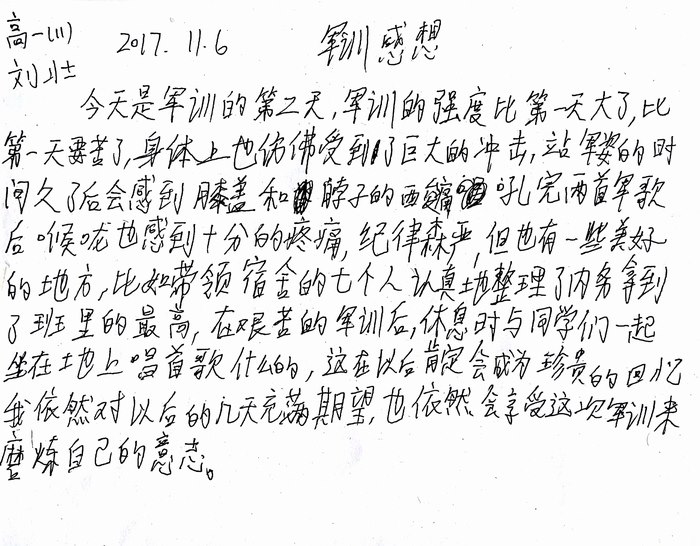 高一(11) 2017. 11.6 军训感想
刘壮
今天是军训的第二天,军训的强度比第一天大了,比
第一天要苦了,身体上也仿佛受到了巨大的冲击,站军姿的时
间久了后会感到膝盖和脖子的 吼完两首军歌
后喉咙也感到十分的疼痛,纪律森严,但也有一些美好
的地方,比如带领宿舍的七个人认真地整理了内务拿到
了班里的最高,在艰苦的军训后,休息时与同学们一起
坐在土地上唱首歌什么的,这在以后肯定会成为珍贵的回忆
我依然对以后的几天充满期望,也依然会享受这次军训来
磨炼自己的意志。